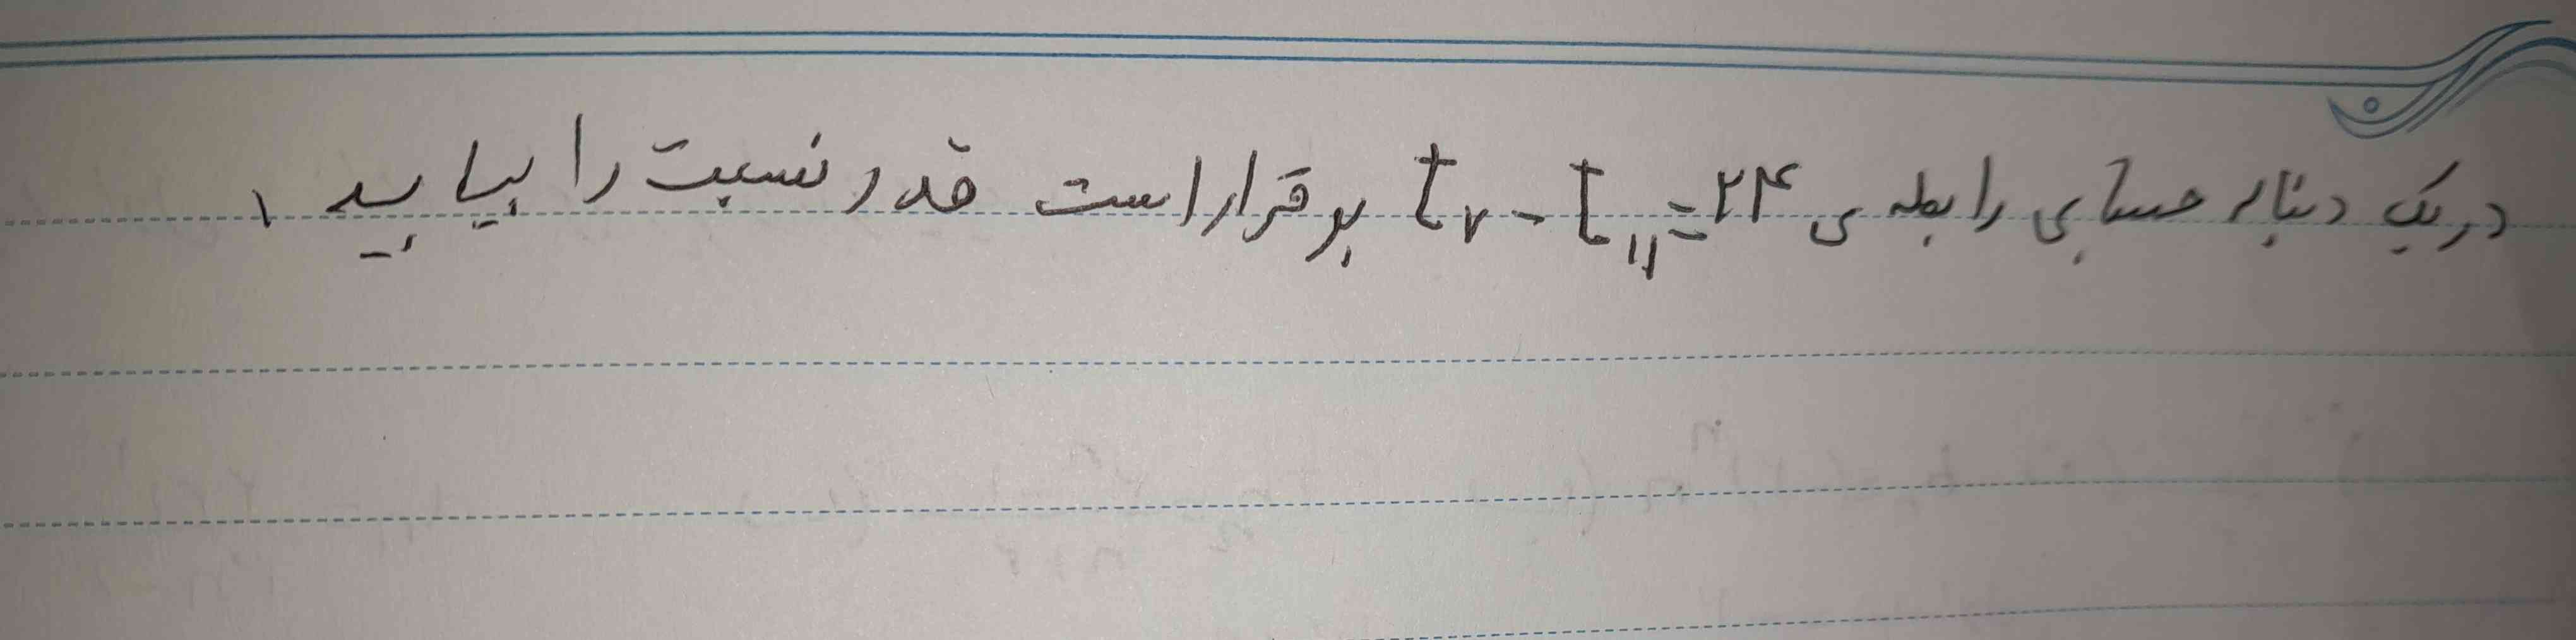 در یک دنباله حسابی رابطه ی t۷ - t۱۱ = ۲۴ برقرار است قدر نسبت را بیابید.